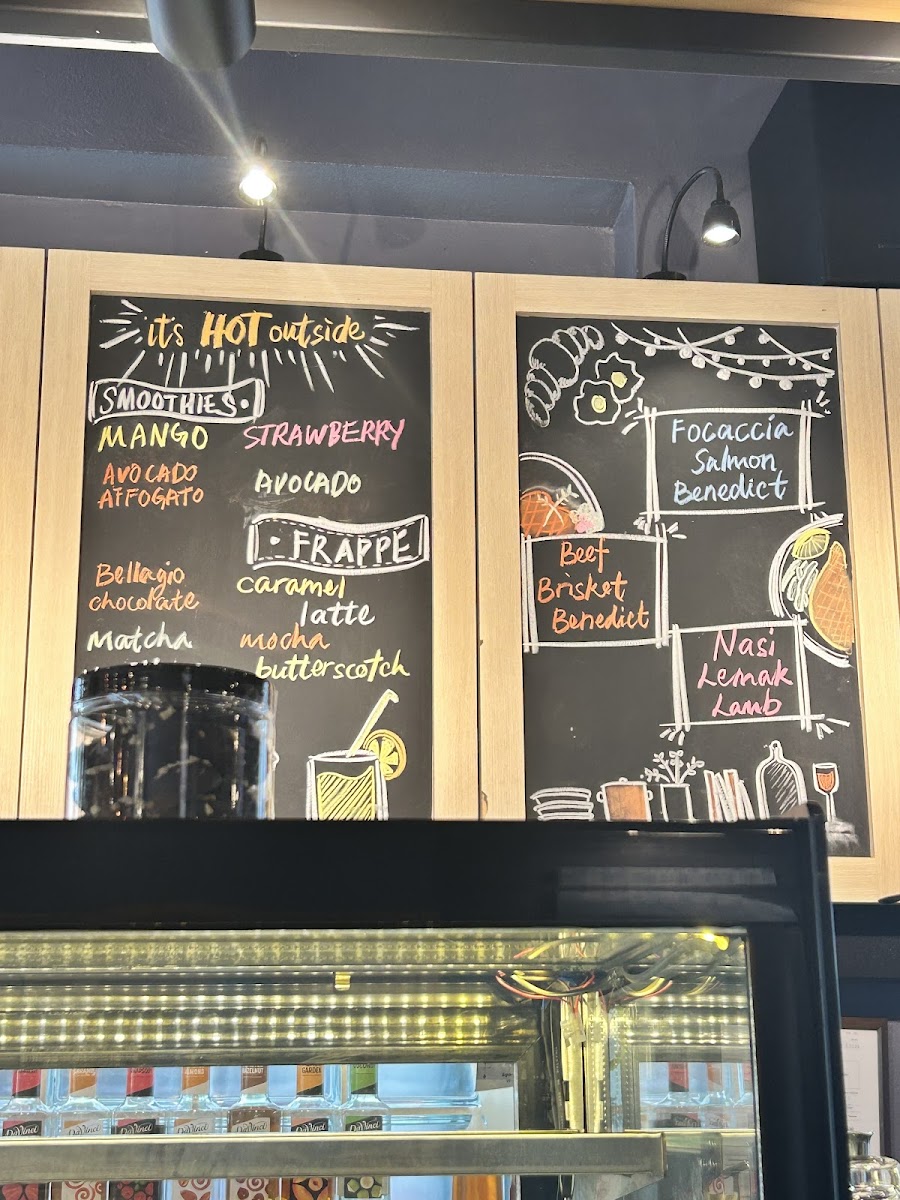 its HOT outside
SMOOTHIES
MANGO
STRAWBERRY
AVOCADO
AFFOGATO
AVOCADO
FRAPPE
Bellagio
chocolate
Matcha
caramel
latte
mocha
butterscotch
Focaccia
Salmon
Benedict
Beef
Brisket
Benedict
Nasi
Lemak
Lamb
DaVinci
DaVinci
DaVinci
DaVinci
DaVinci
DaVinci
DaVinci